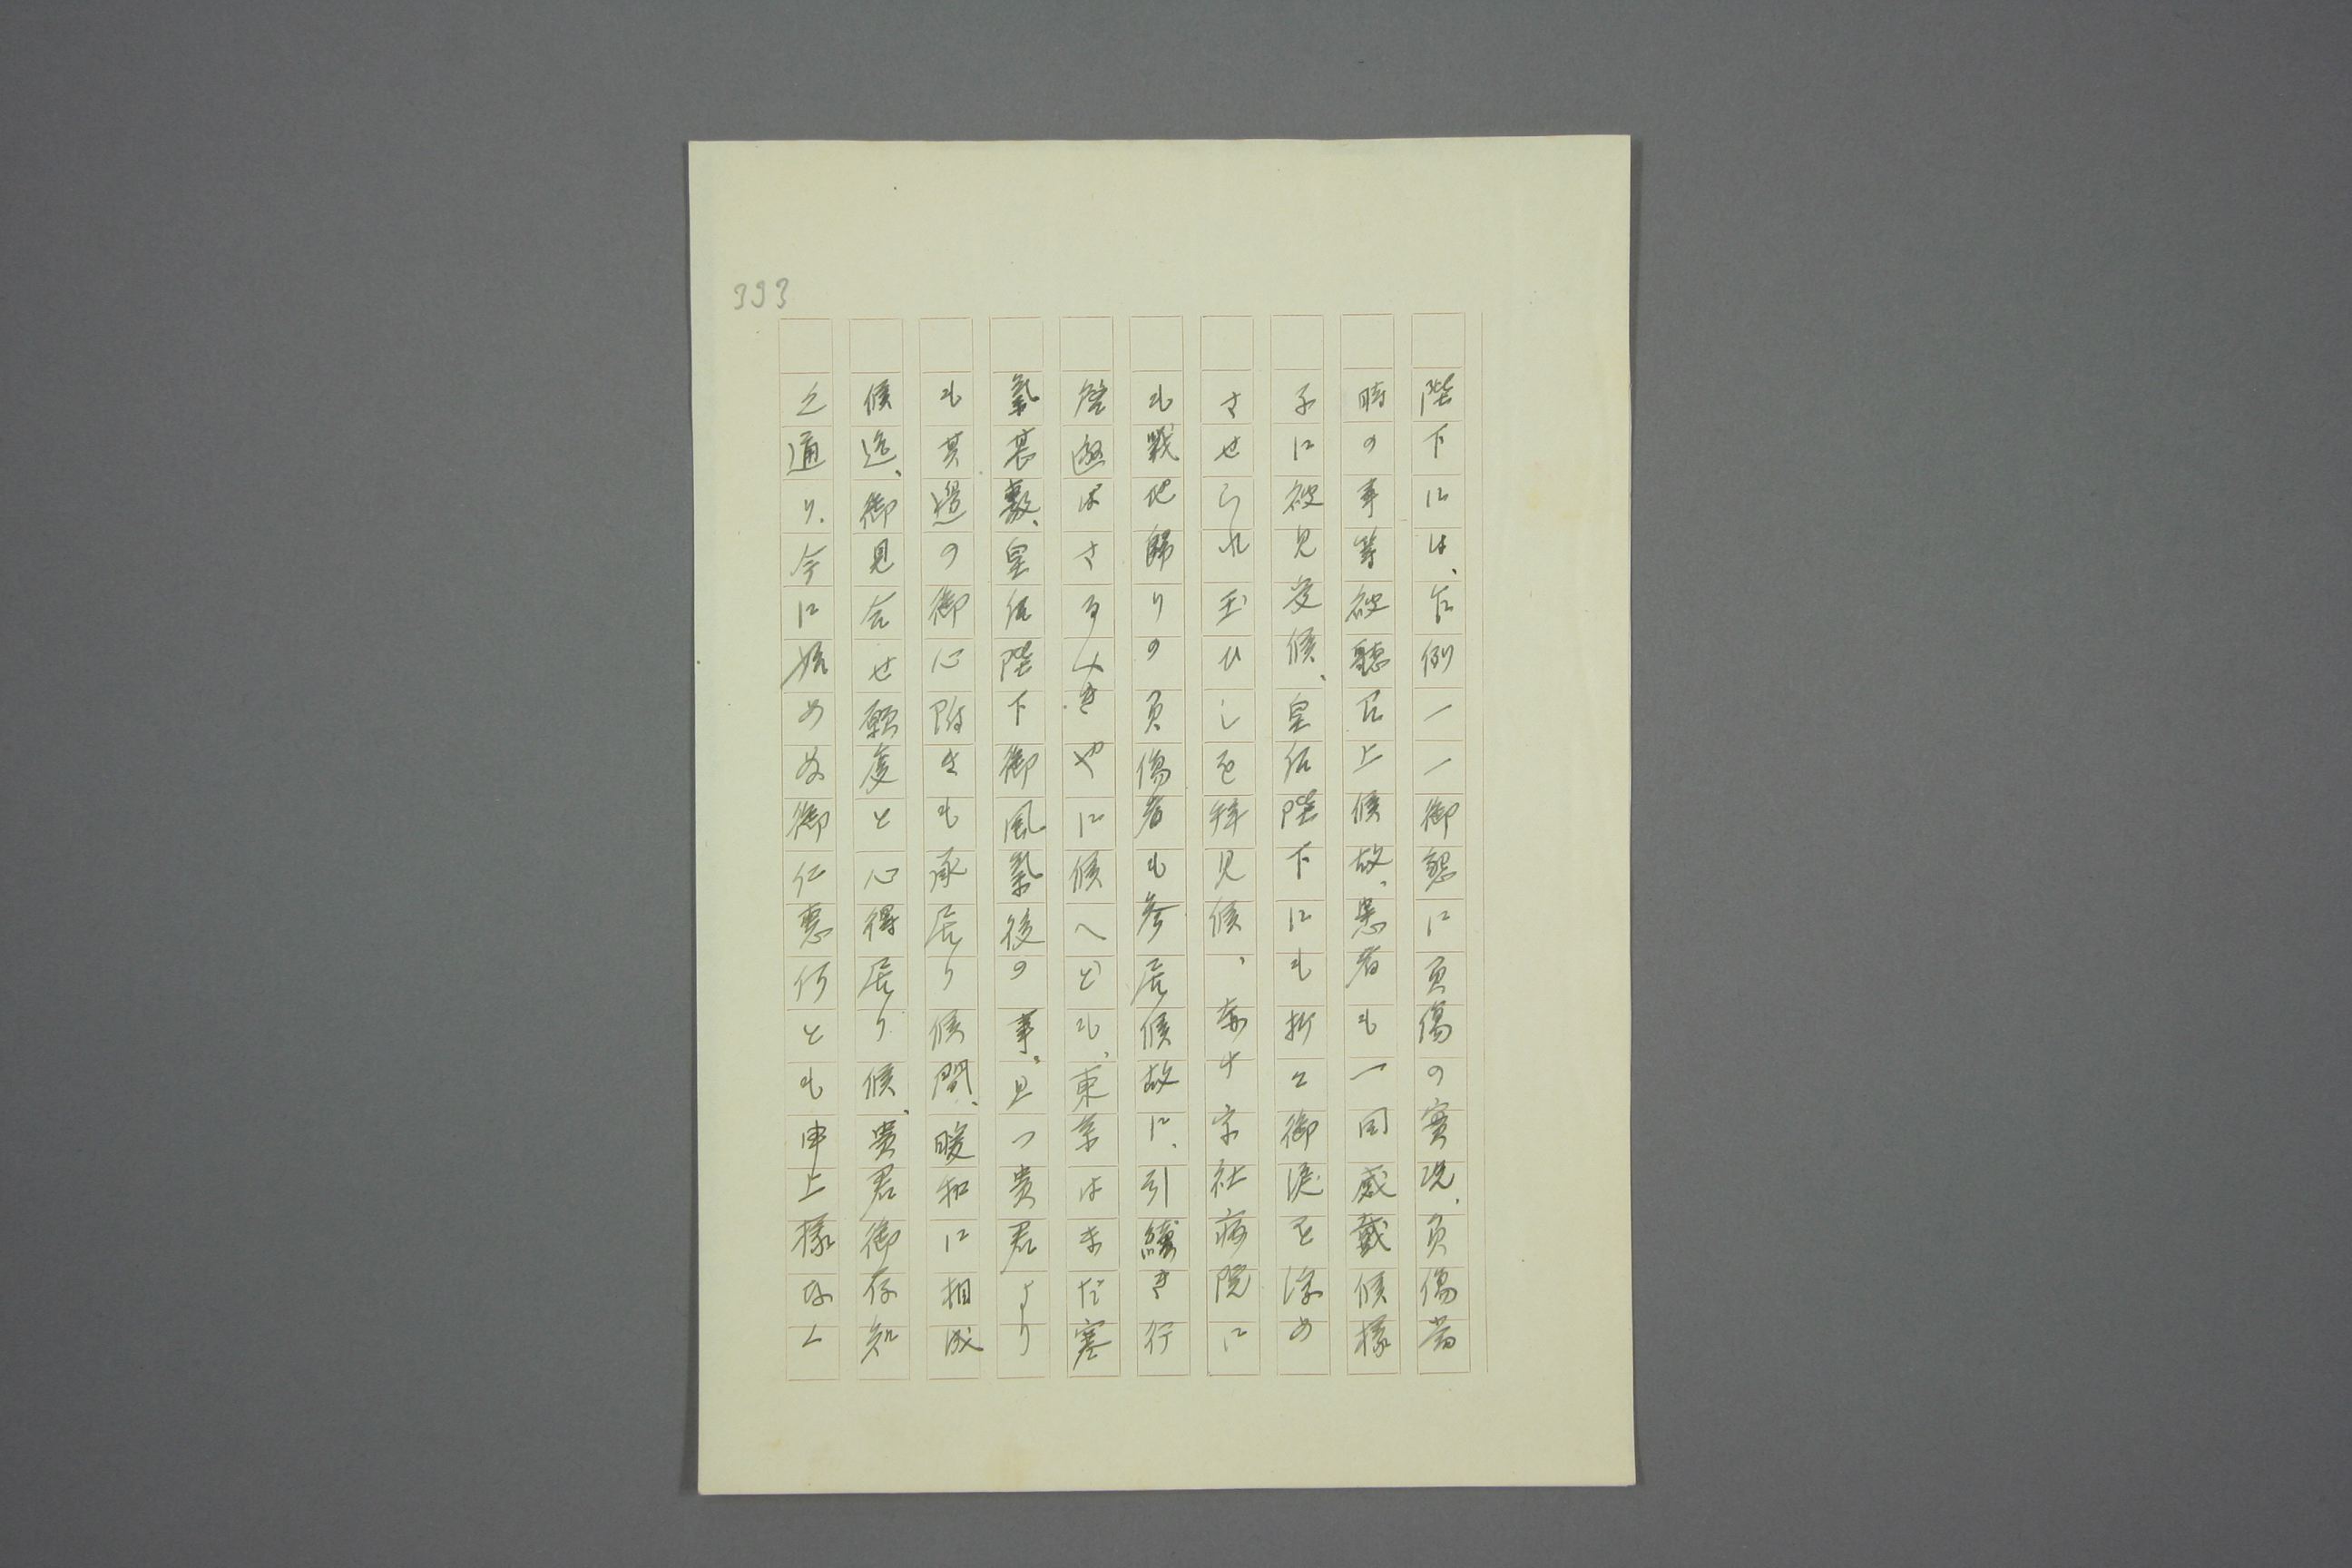 393
陛下には、乍例一一御懇に負傷の實況、負傷當
時の事等被聽召上候故、患者も一同感戴候樣
子に被見受候、皇后陛下にも折々御涙を浮め
させられ玉ひしを拝見候、赤十字社病院に
も戰地歸りの負傷者も參居候故に、引續き行
啓遊ばさるべきやに候へども、東京はまだ寒
氣甚敷、皇后陛下御風氣後の事、且つ貴君より
も其邊の御心附きも承居り候間、暖和に相成
候迄、御見合せ願度と心得居り候、貴君御存知
之通り、今に始めぬ御仁惠何とも申上樣なく